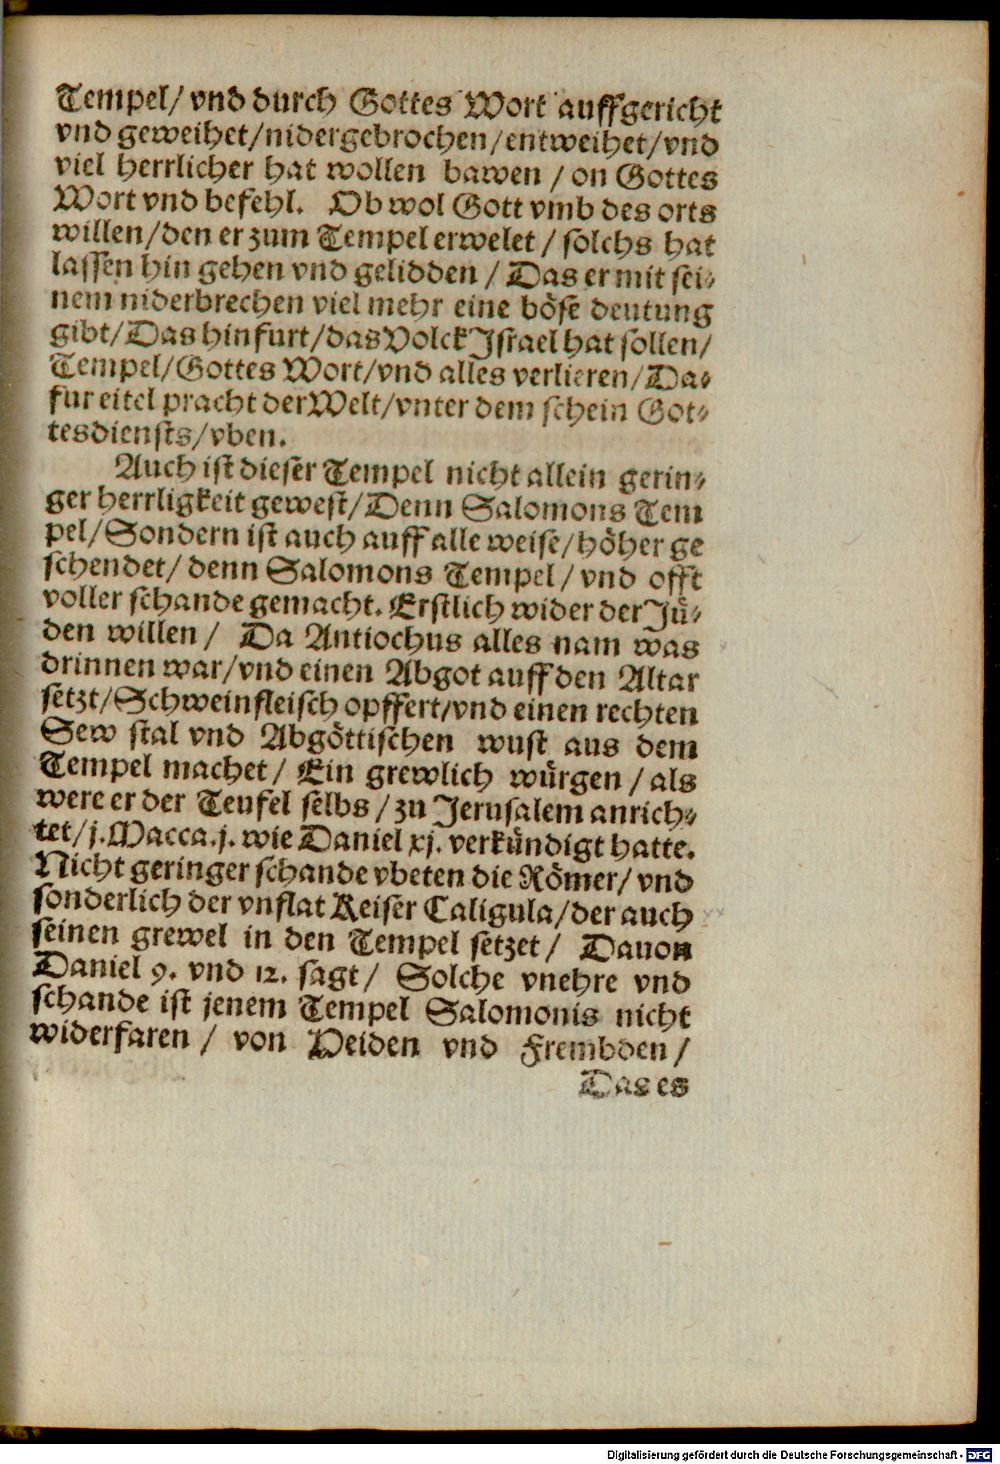 Tempel/ vnd durch Gottes Wort auffgericht
vnd geweihet/nidergebrochen/entweihet/vnd
viel herrlicher hat wollen bawen / on Gottes
Wort vnd befehl. Ob wol Gott vmb des orts
willen/den er zum Tempel erwelet / solchs hat
lassen hin gehen vnd gelidden / Das er mit sei⸗
nem niderbrechen viel mehr eine böse deutung
gibt/Das hinfurt/das Volck Israel hat sollen/
Tempel/Gottes Wort/vnd alles verlieren/Da⸗
fur eitel pracht der Welt/vnter dem schein Got⸗
tesdiensts/vben.
Auch ist dieser Tempel nicht allein gerin⸗
ger herrligkeit gewest/Denn Salomons Tem
pel/Sondern ist auch auff alle weise/höher ge
schendet/ denn Salomons Tempel/ vnd offt
voller schande gemacht. Erstlich wider der Jü⸗
den willen/ Da Antiochus alles nam was
drinnen war/vnd einen Abgot auff den Altar
setzt/Schweinfleisch opffert/vnd einen rechten
Sew stal vnd Abgöttischen wust aus dem
Tempel machet/ Ein grewlich würgen / als
were er der Teufel selbs / zu Jerusalem anrich⸗
tet/j.Macca.j. wie Daniel xj. verkündigt hatte.
Nicht geringer schande vbeten die Römer/ vnd
sonderlich der vnflat Keiser Caligula/der auch
seinen grewel in den Tempel setzet/ Dauon
Daniel 9. vnd 12. sagt/ Solche vnehre vnd
schande ist jenem Tempel Salomonis nicht
widerfaren / von Heiden vnd Frembden /
Das es
Digitalisierung gefördert durch die Deutsche Forschungsgemeinschaft - DFG